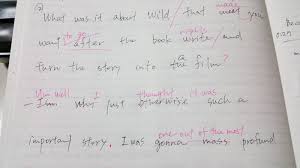 (2)
made
What was it about Wild / that meet you
to go rights
want after the book write and
a
turn the story into the film?
Um well I thought it was
- I'm why just otherwise such a
one out of the most
important story. I was gonna mass profound
Bec
0:29